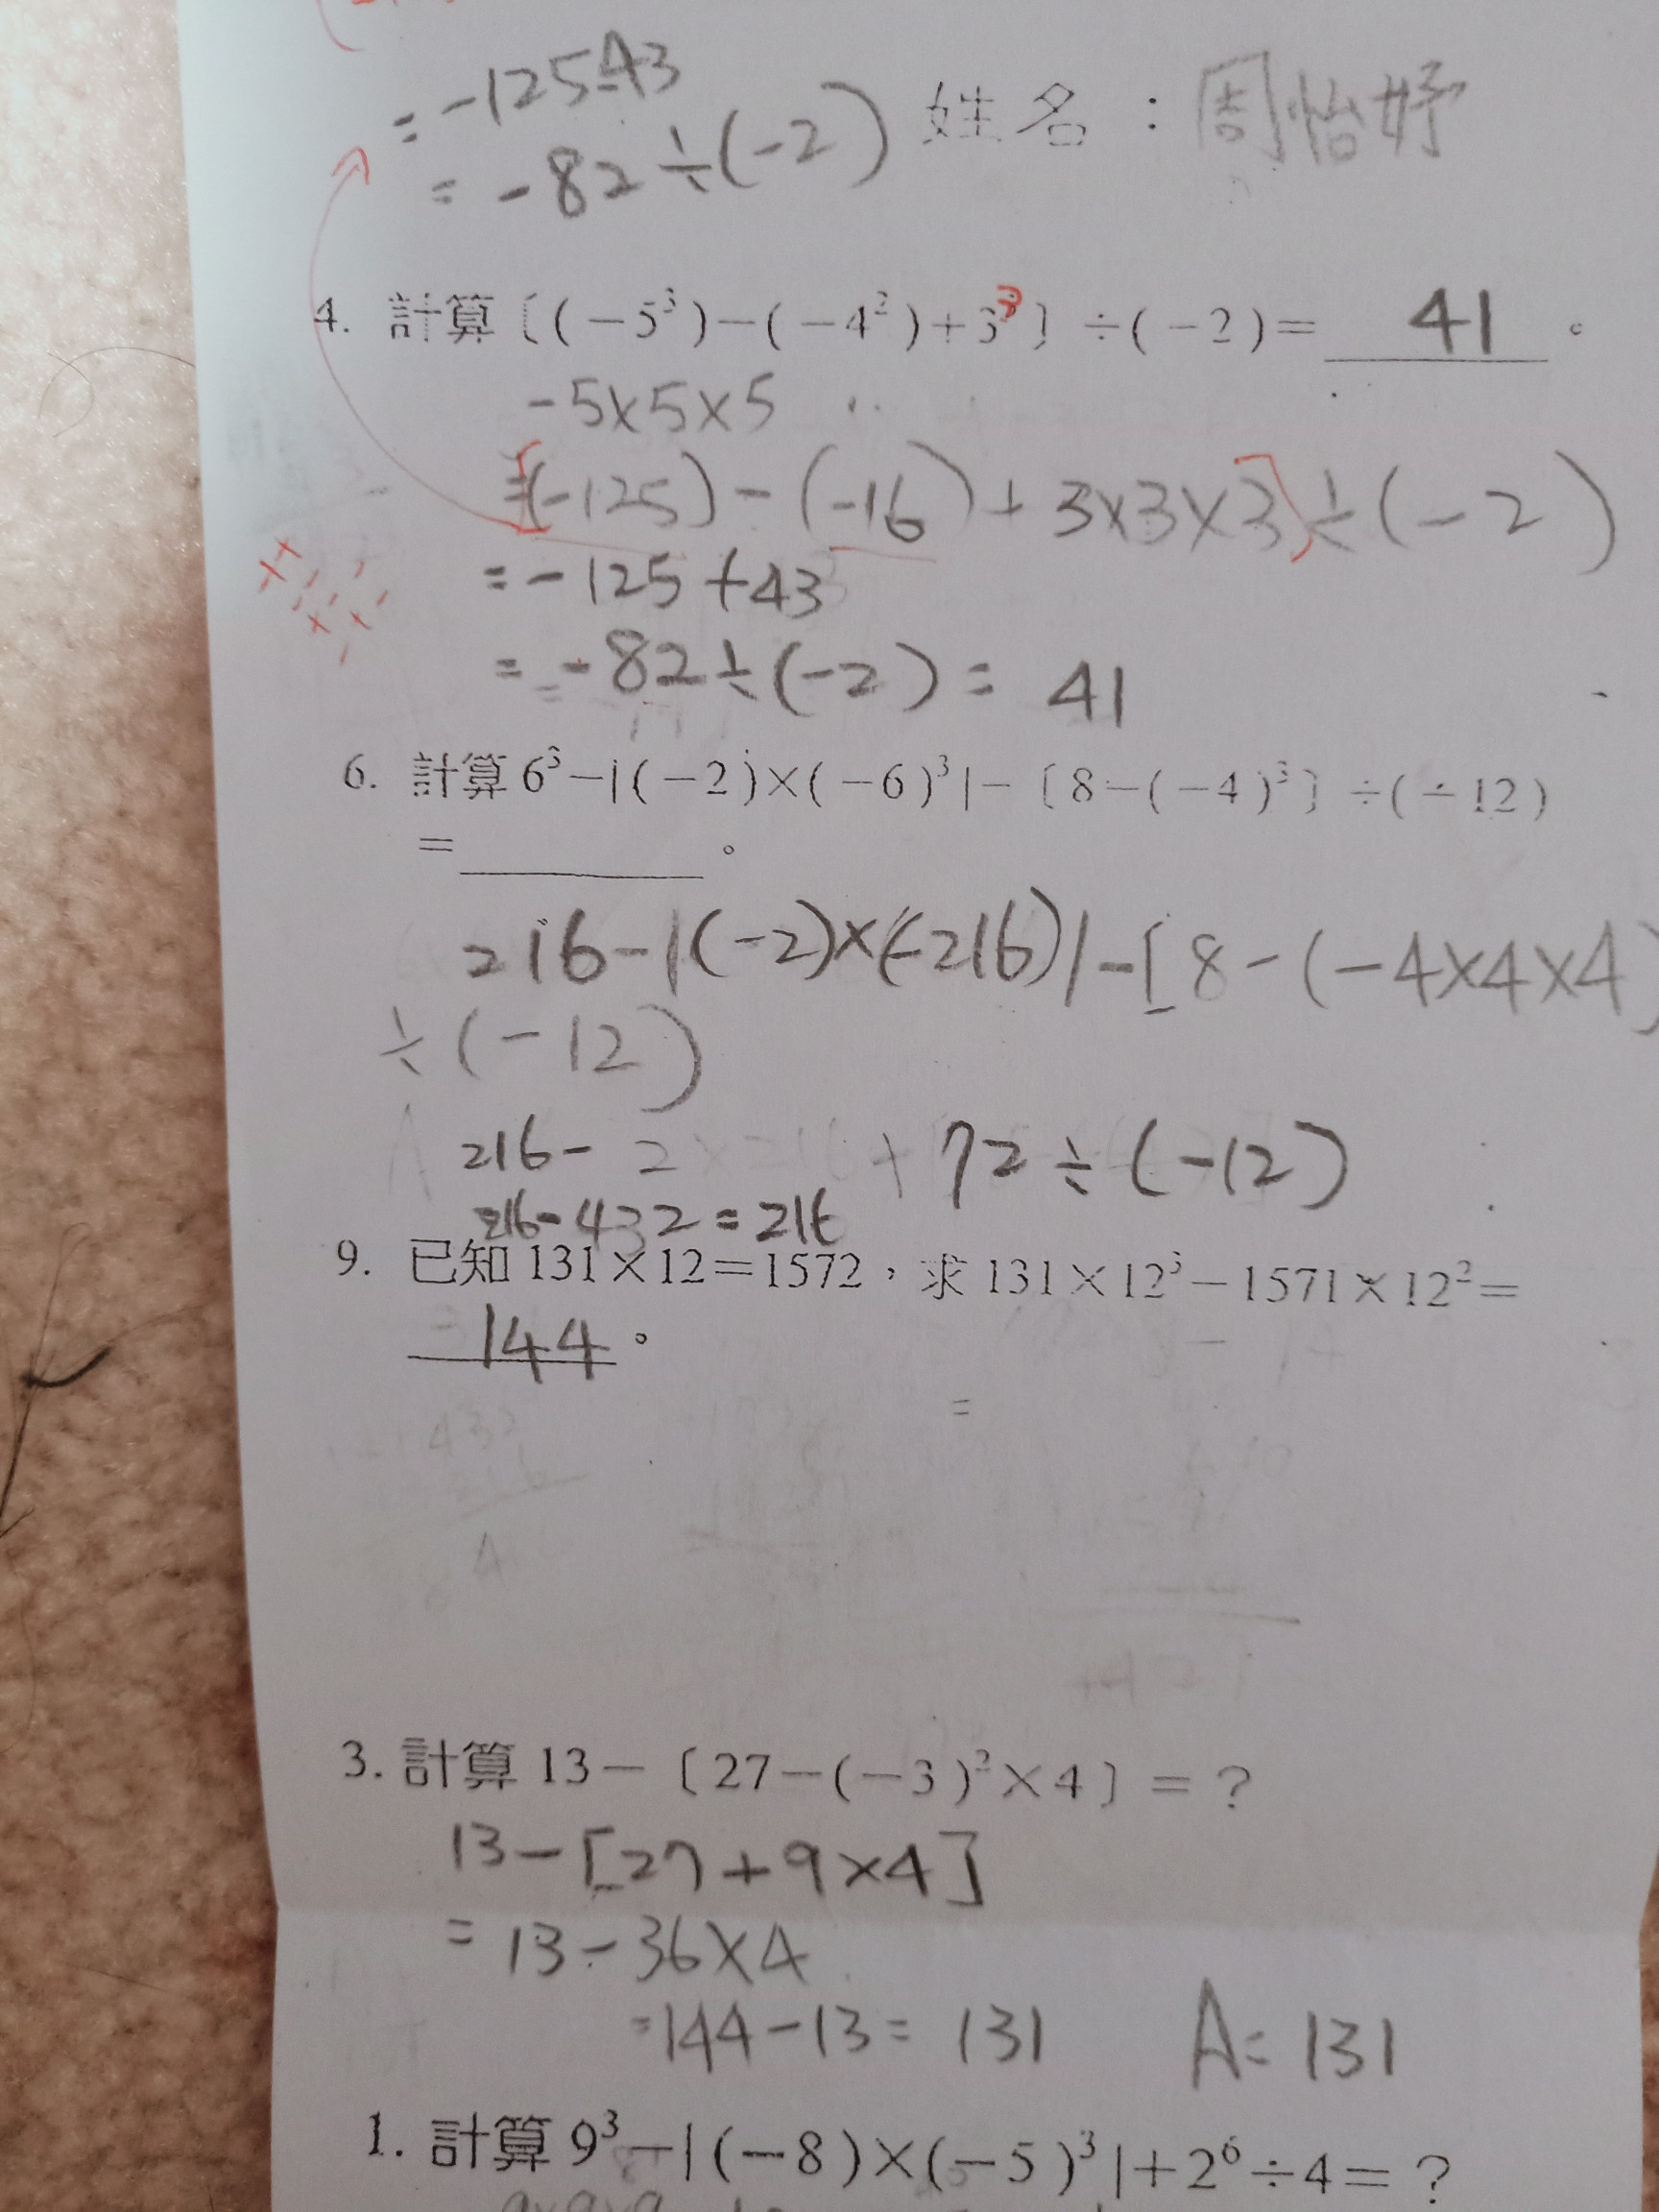 = -125+43
= -82÷(-2)
姓名：周怡妤
4. 計算〔(-5³)-(-4²)+3³〕÷(-2)= 41 。
-5×5×5
=[(-125)-(-16)+3×3×3]÷(-2)
= -125+43
= -82÷(-2)= 41
6. 計算 6³-|(-2)×(-6)³|-〔8-(-4)³〕÷(-12)
= 。
216-|(-2)×(-216)|-[8-(-4×4×4)
÷(-12)
216- 2 + 72÷(-12)
216-432=216
9. 已知131×12=1572，求131×12³-1571×12²=
144 。
3. 計算 13-〔27-(-3)²×4〕=？
13-[27+9×4]
= 13-36×4
=144-13= 131 A= 131
1. 計算 9³-|(-8)×(-5)³|+2⁶÷4=？